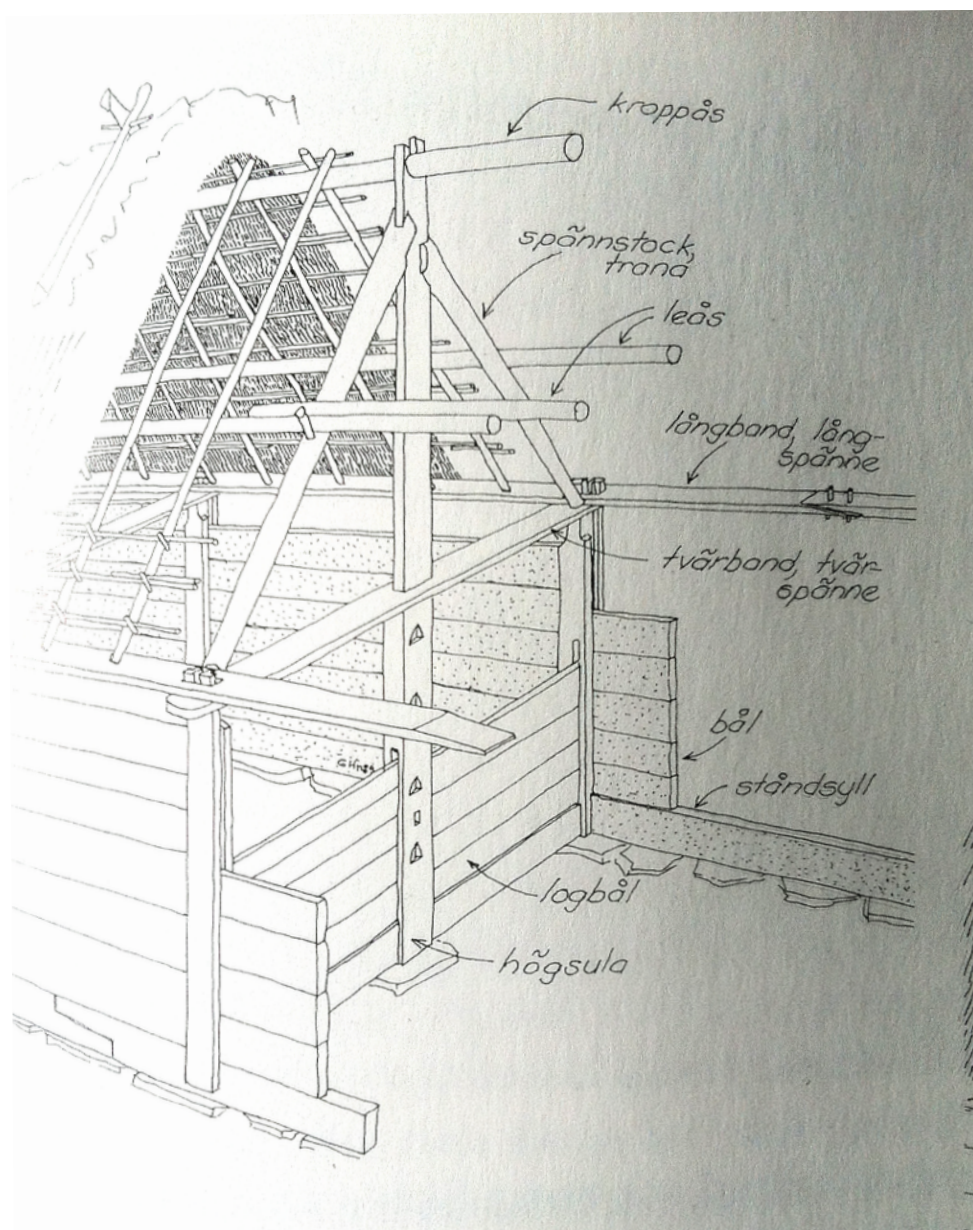 kroppås
spännstock,
trana
leås
långband, lång-
spänne
tvärband, tvär-
spänne
bål
ståndsyll
logbål
högsula